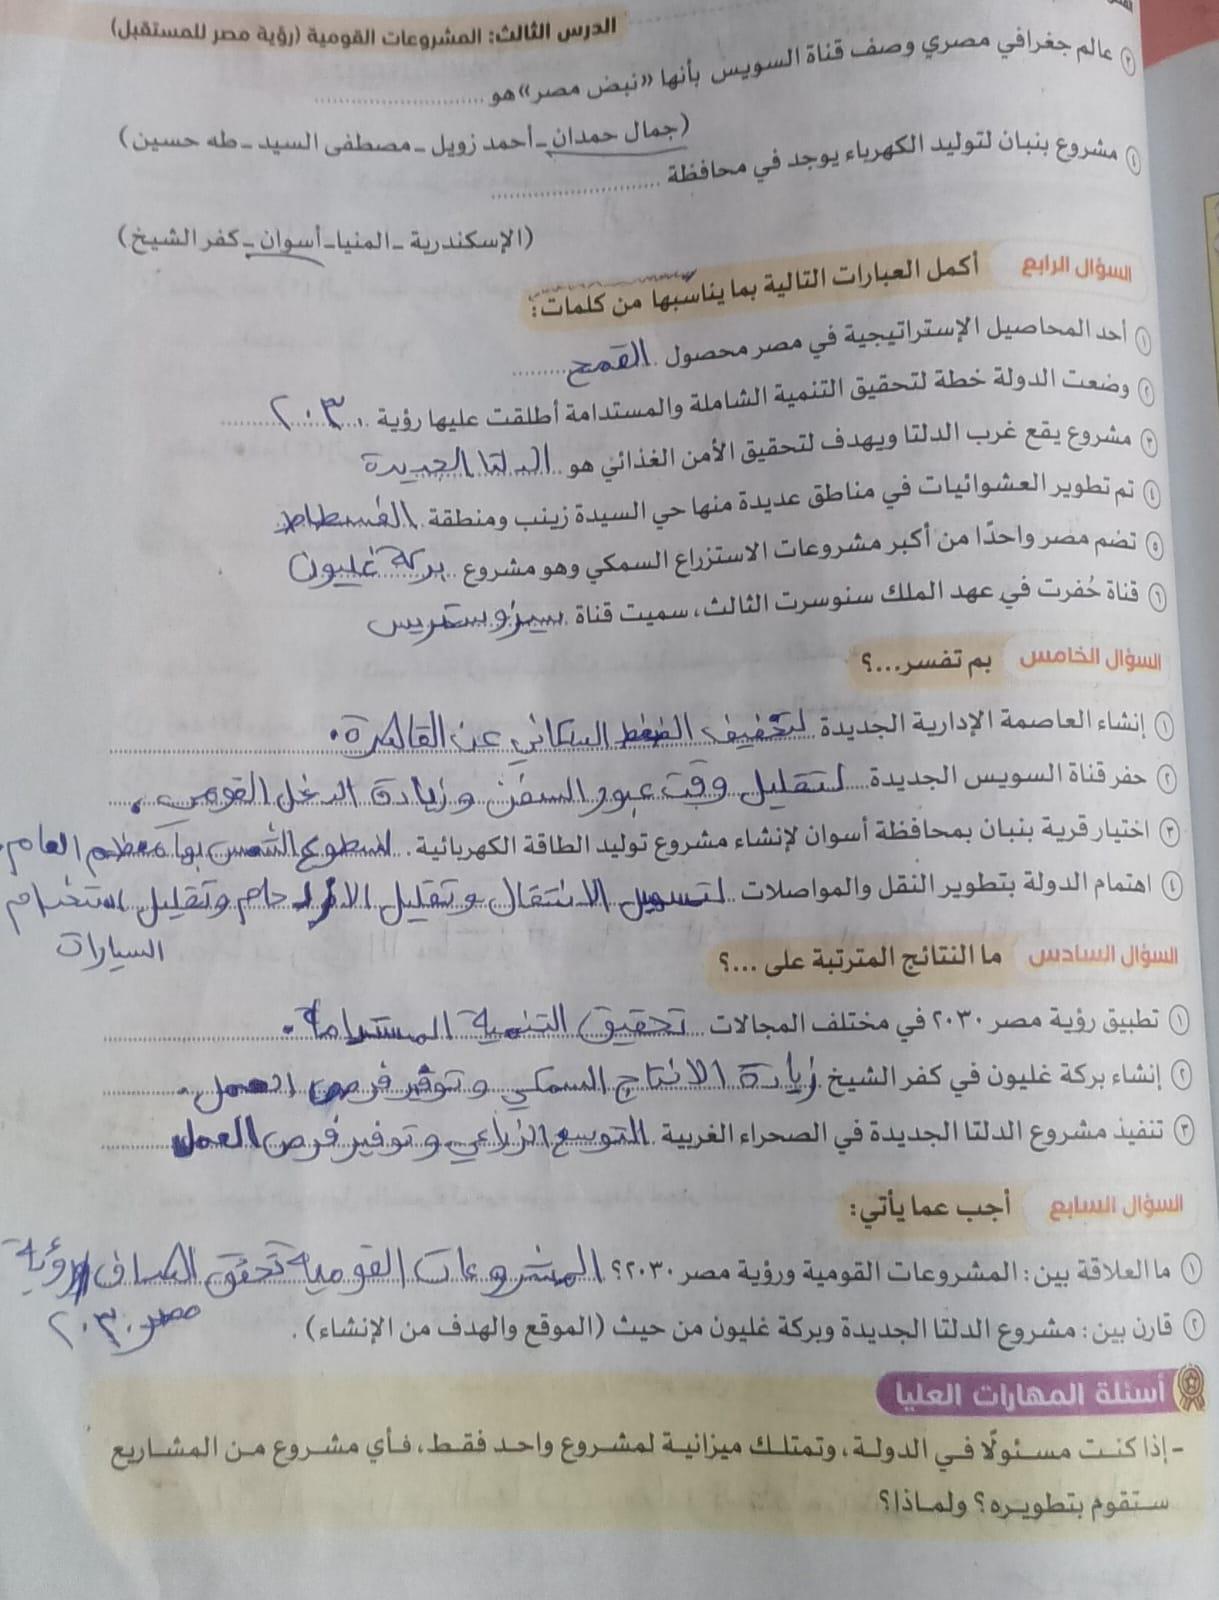 الدرس الثالث: المشروعات القومية (رؤية مصر للمستقبل)
٣ عالم جغرافي مصري وصف قناة السويس بأنها «نبض مصر» هو ........................
(جمال حمدان - أحمد زويل - مصطفى السيد - طه حسين)
٤ مشروع بنبان لتوليد الكهرباء يوجد في محافظة ........................
(الإسكندرية - المنيا - أسوان - كفر الشيخ)
السؤال الرابع أكمل العبارات التالية بما يناسبها من كلمات:
١ أحد المحاصيل الإستراتيجية في مصر محصول القمح
٢ وضعت الدولة خطة لتحقيق التنمية الشاملة والمستدامة أطلقت عليها رؤية ٢٠٣٠
٣ مشروع يقع غرب الدلتا ويهدف لتحقيق الأمن الغذائي هو الدلتا الجديدة
٤ تم تطوير العشوائيات في مناطق عديدة منها حي السيدة زينب ومنطقة الفسطاط
٥ تضم مصر واحدًا من أكبر مشروعات الاستزراع السمكي وهو مشروع بركة غليون
٦ قناة حُفرت في عهد الملك سنوسرت الثالث، سميت قناة سيزوستريس
السؤال الخامس بم تفسر...؟
١ إنشاء العاصمة الإدارية الجديدة لتخفيف الضغط السكاني عن القاهرة.
٢ حفر قناة السويس الجديدة لتقليل وقت عبور السفن وزيادة الدخل القومي.
٣ اختيار قرية بنبان بمحافظة أسوان لإنشاء مشروع توليد الطاقة الكهربائية. لسطوع الشمس بها معظم العام.
٤ اهتمام الدولة بتطوير النقل والمواصلات لتسهيل الانتقال وتقليل الازدحام وتقليل استخدام
السيارات
السؤال السادس ما النتائج المترتبة على ...؟
١ تطبيق رؤية مصر ٢٠٣٠ في مختلف المجالات تحقيق التنمية المستدامة.
٢ إنشاء بركة غليون في كفر الشيخ زيادة الانتاج السمكي وتوفر فرص العمل.
٣ تنفيذ مشروع الدلتا الجديدة في الصحراء الغربية التوسع الزراعي وتوفير فرص العمل
السؤال السابع أجب عما يأتي:
١ ما العلاقة بين: المشروعات القومية ورؤية مصر ٢٠٣٠؟ المشروعات القومية تحقق اهداف رؤية
مصر ٢٠٣٠
٢ قارن بين: مشروع الدلتا الجديدة وبركة غليون من حيث (الموقع والهدف من الإنشاء).
أسئلة المهارات العليا
- إذا كنت مسئولًا في الدولة، وتمتلك ميزانية لمشروع واحد فقط، فأي مشروع من المشاريع
ستقوم بتطويره؟ ولماذا؟